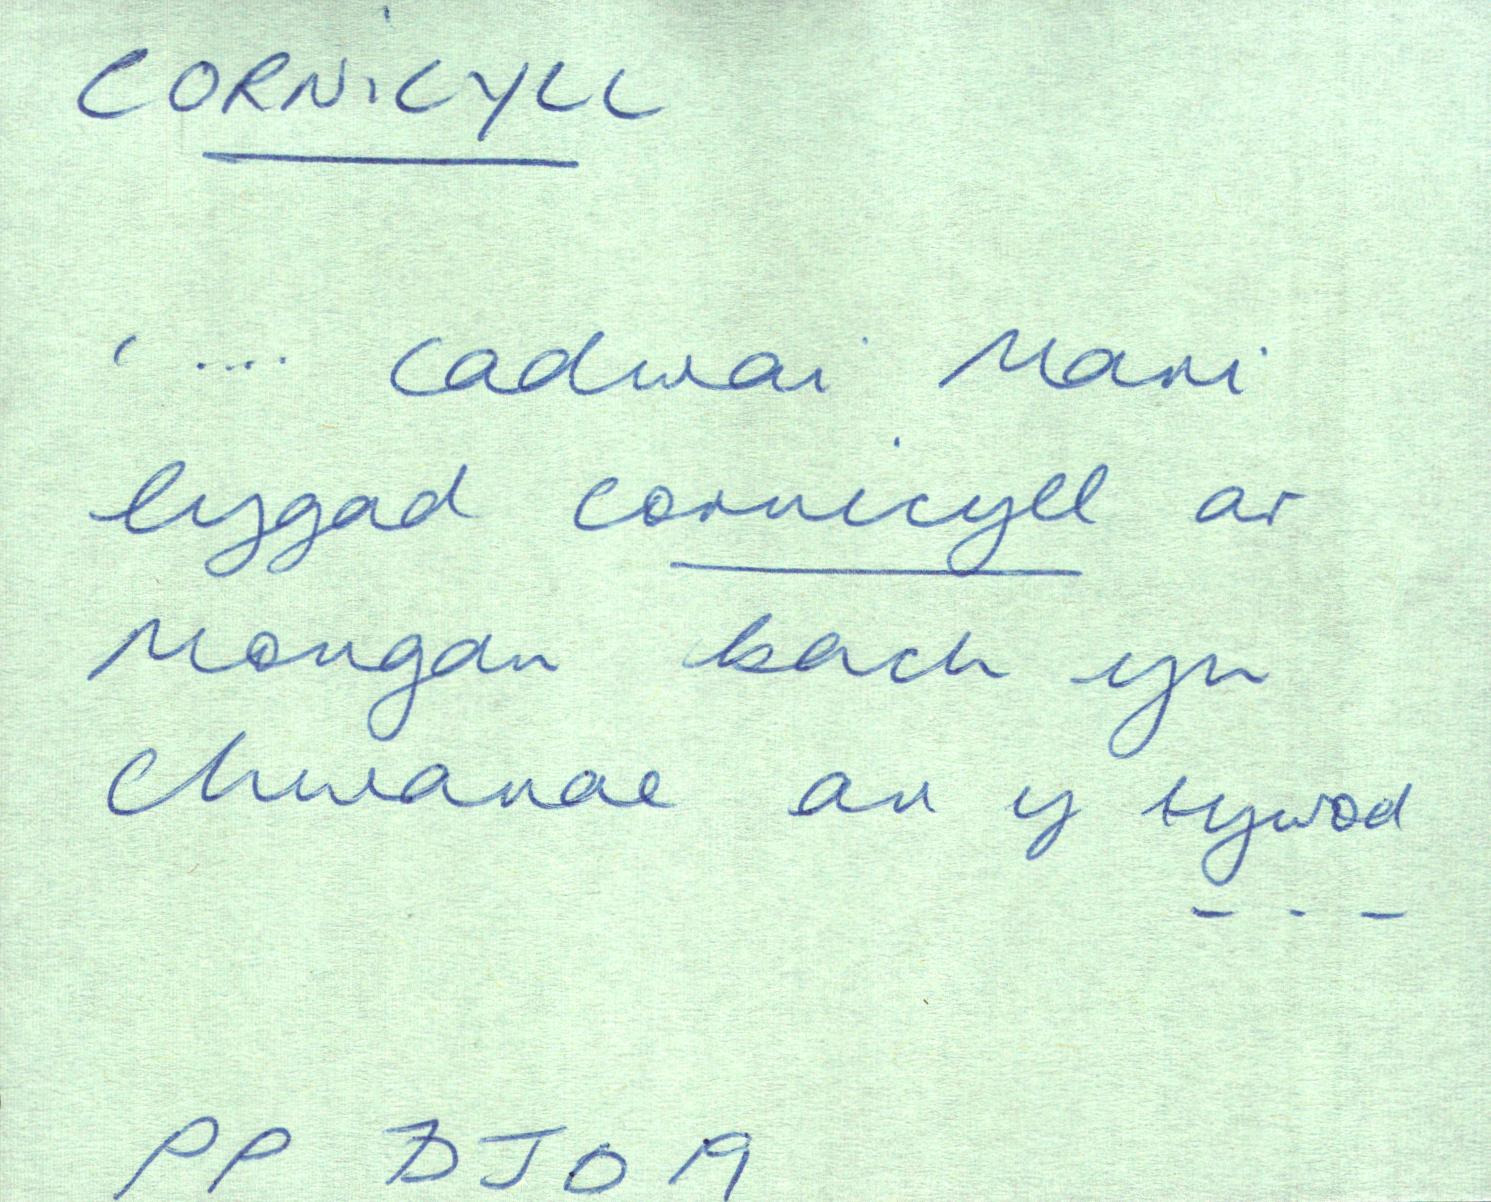 CORNICYLL
' .... cadwai Mari
lygad cornicyll ar
Mongan bach yn
chwarae ar y tywod
- - -
PP DJO 19